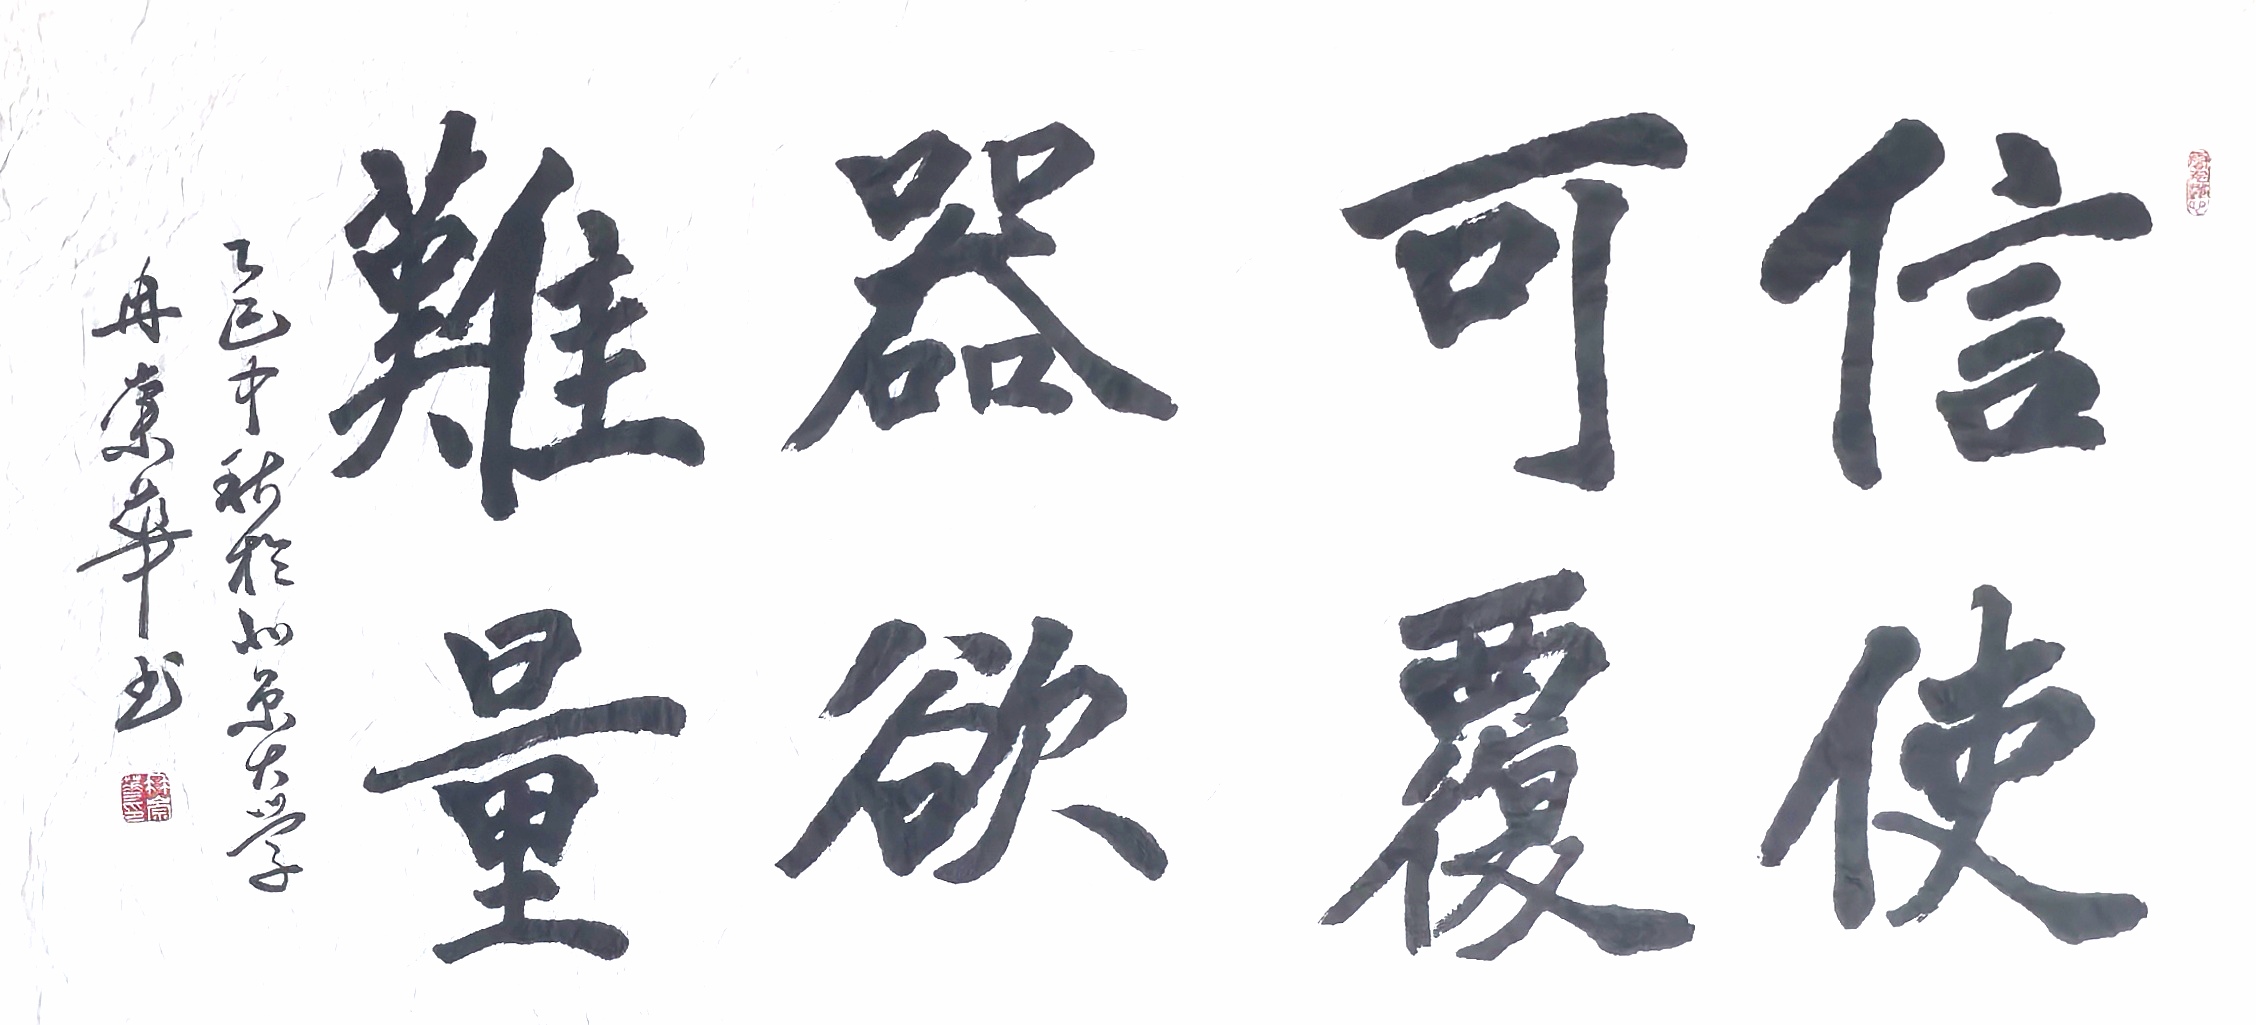 信使
可覆
器欲
難量
乙巳中秋於北京大学
冉崇華书